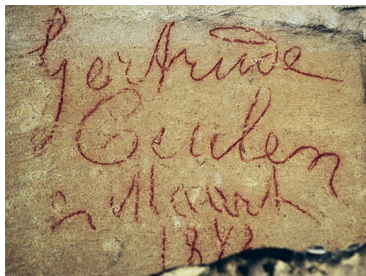 Gertrude
Ceulen
2 Maart
18